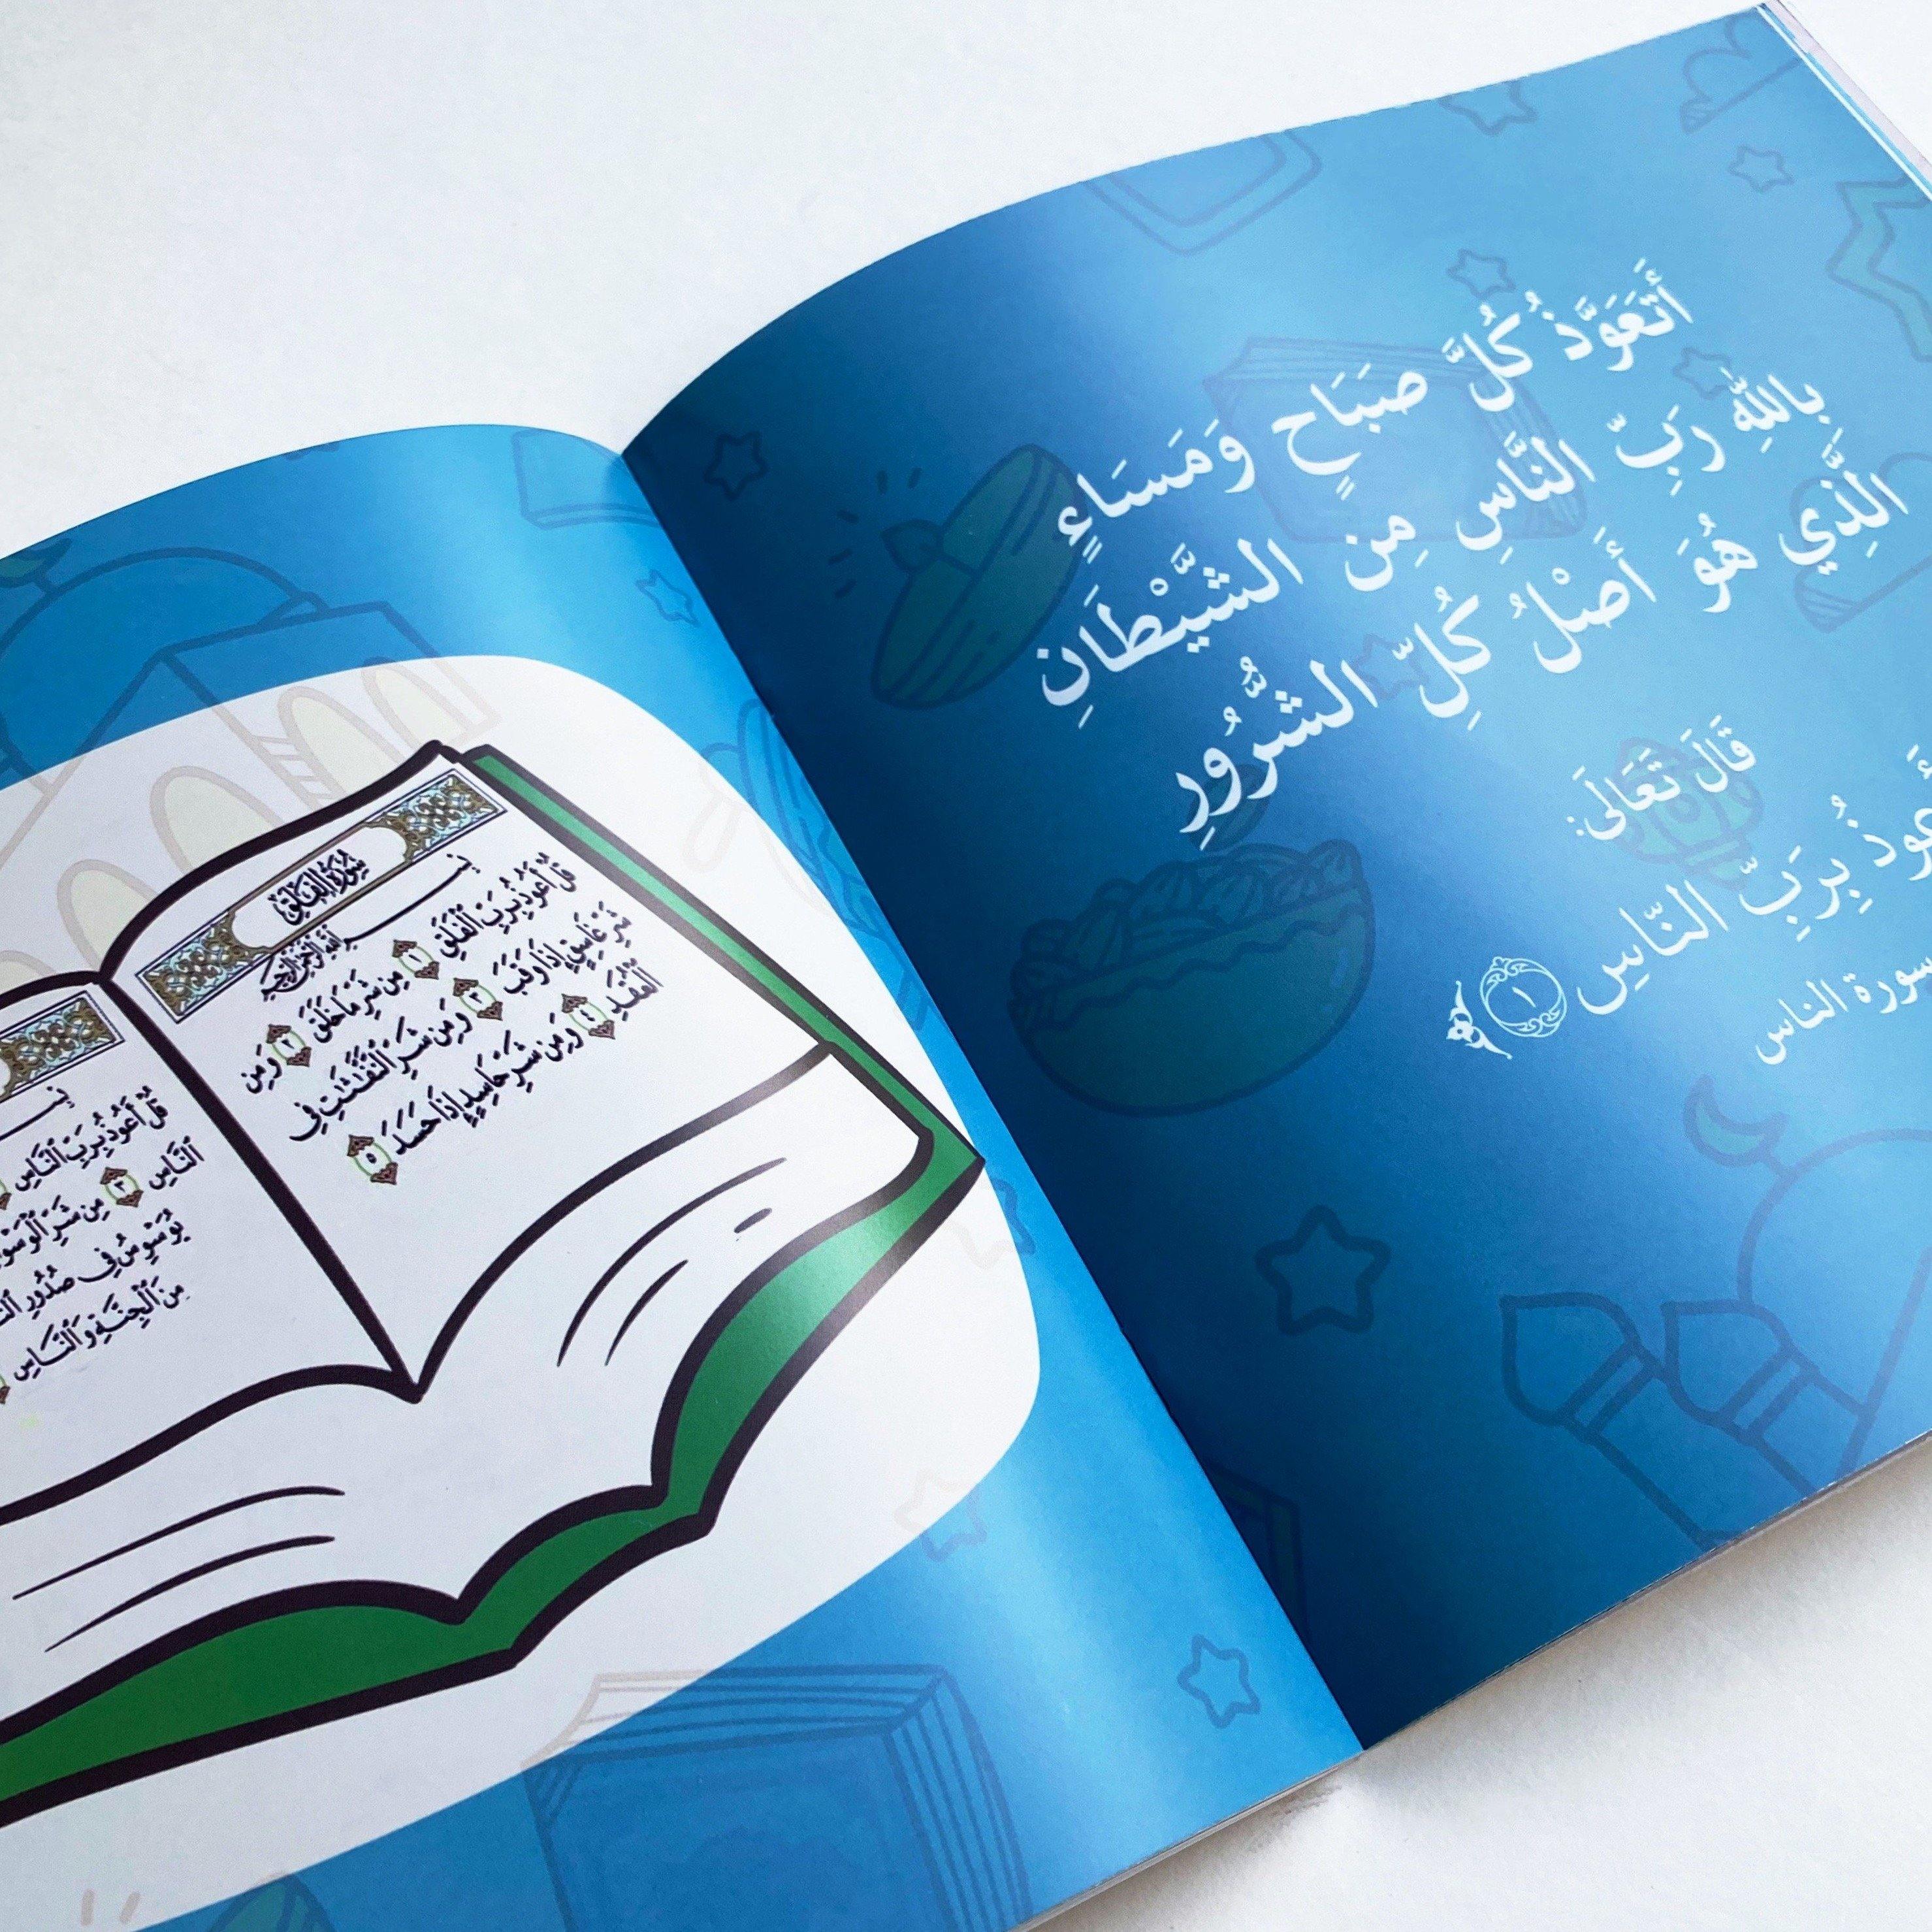 أَتَعَوَّذُ كُلَّ صَبَاحٍ وَمَسَاءٍ
بِاللَّهِ رَبِّ النَّاسِ مِن الشَّيْطَانِ
الَّذِي هُوَ أَصْلُ كُلِّ الشُّرُورِ
قَالَ تَعَالَى:
أَعُوذُ بِرَبِّ النَّاسِ ١
سورة الناس
سُورَةُ الفَلَقِ
بِسْمِ اللَّهِ الرَّحْمَٰنِ الرَّحِيمِ
قُلْ أَعُوذُ بِرَبِّ ٱلْفَلَقِ ١ مِن شَرِّ مَا خَلَقَ ٢ وَمِن
شَرِّ غَاسِقٍ إِذَا وَقَبَ ٣ وَمِن شَرِّ ٱلنَّفَّٰثَٰتِ فِي
ٱلْعُقَدِ ٤ وَمِن شَرِّ حَاسِدٍ إِذَا حَسَدَ ٥
قُلْ أَعُوذُ بِرَبِّ ٱلنَّاسِ
ٱلنَّاسِ ٣ مِن شَرِّ
يُوَسْوِسُ فِي صُدُورِ
مِنَ ٱلْجِنَّةِ وَٱلنَّاسِ